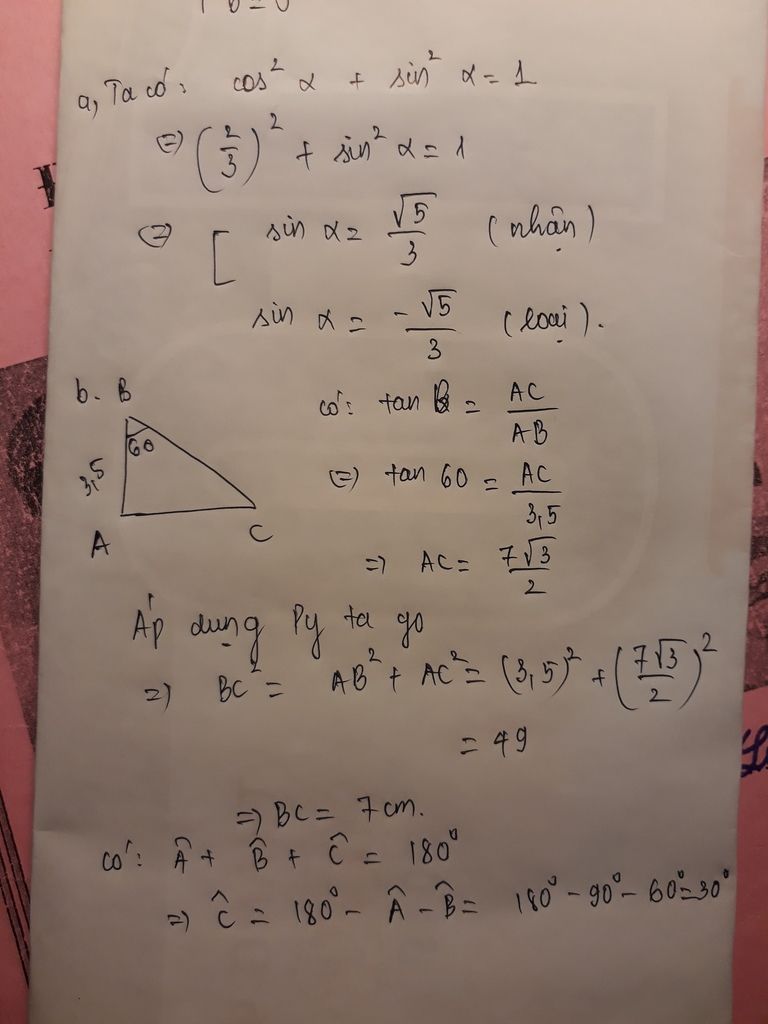 a, Ta có: cos² α + sin² α = 1
⇔ (2/3)² + sin² α = 1
⇔ [ sin α = √5/3 (nhận)
sin α = -√5/3 (loại).
b. B
60
3,5
A C
có: tan B = AC/AB
⇔ tan 60 = AC/3,5
⇒ AC = 7√3/2
Áp dụng Py ta go
⇒ BC² = AB² + AC² = (3,5)² + (7√3/2)²
= 49
⇒ BC = 7 cm.
có: Â + B̂ + Ĉ = 180°
⇒ Ĉ = 180° - Â - B̂ = 180° - 90° - 60° = 30°